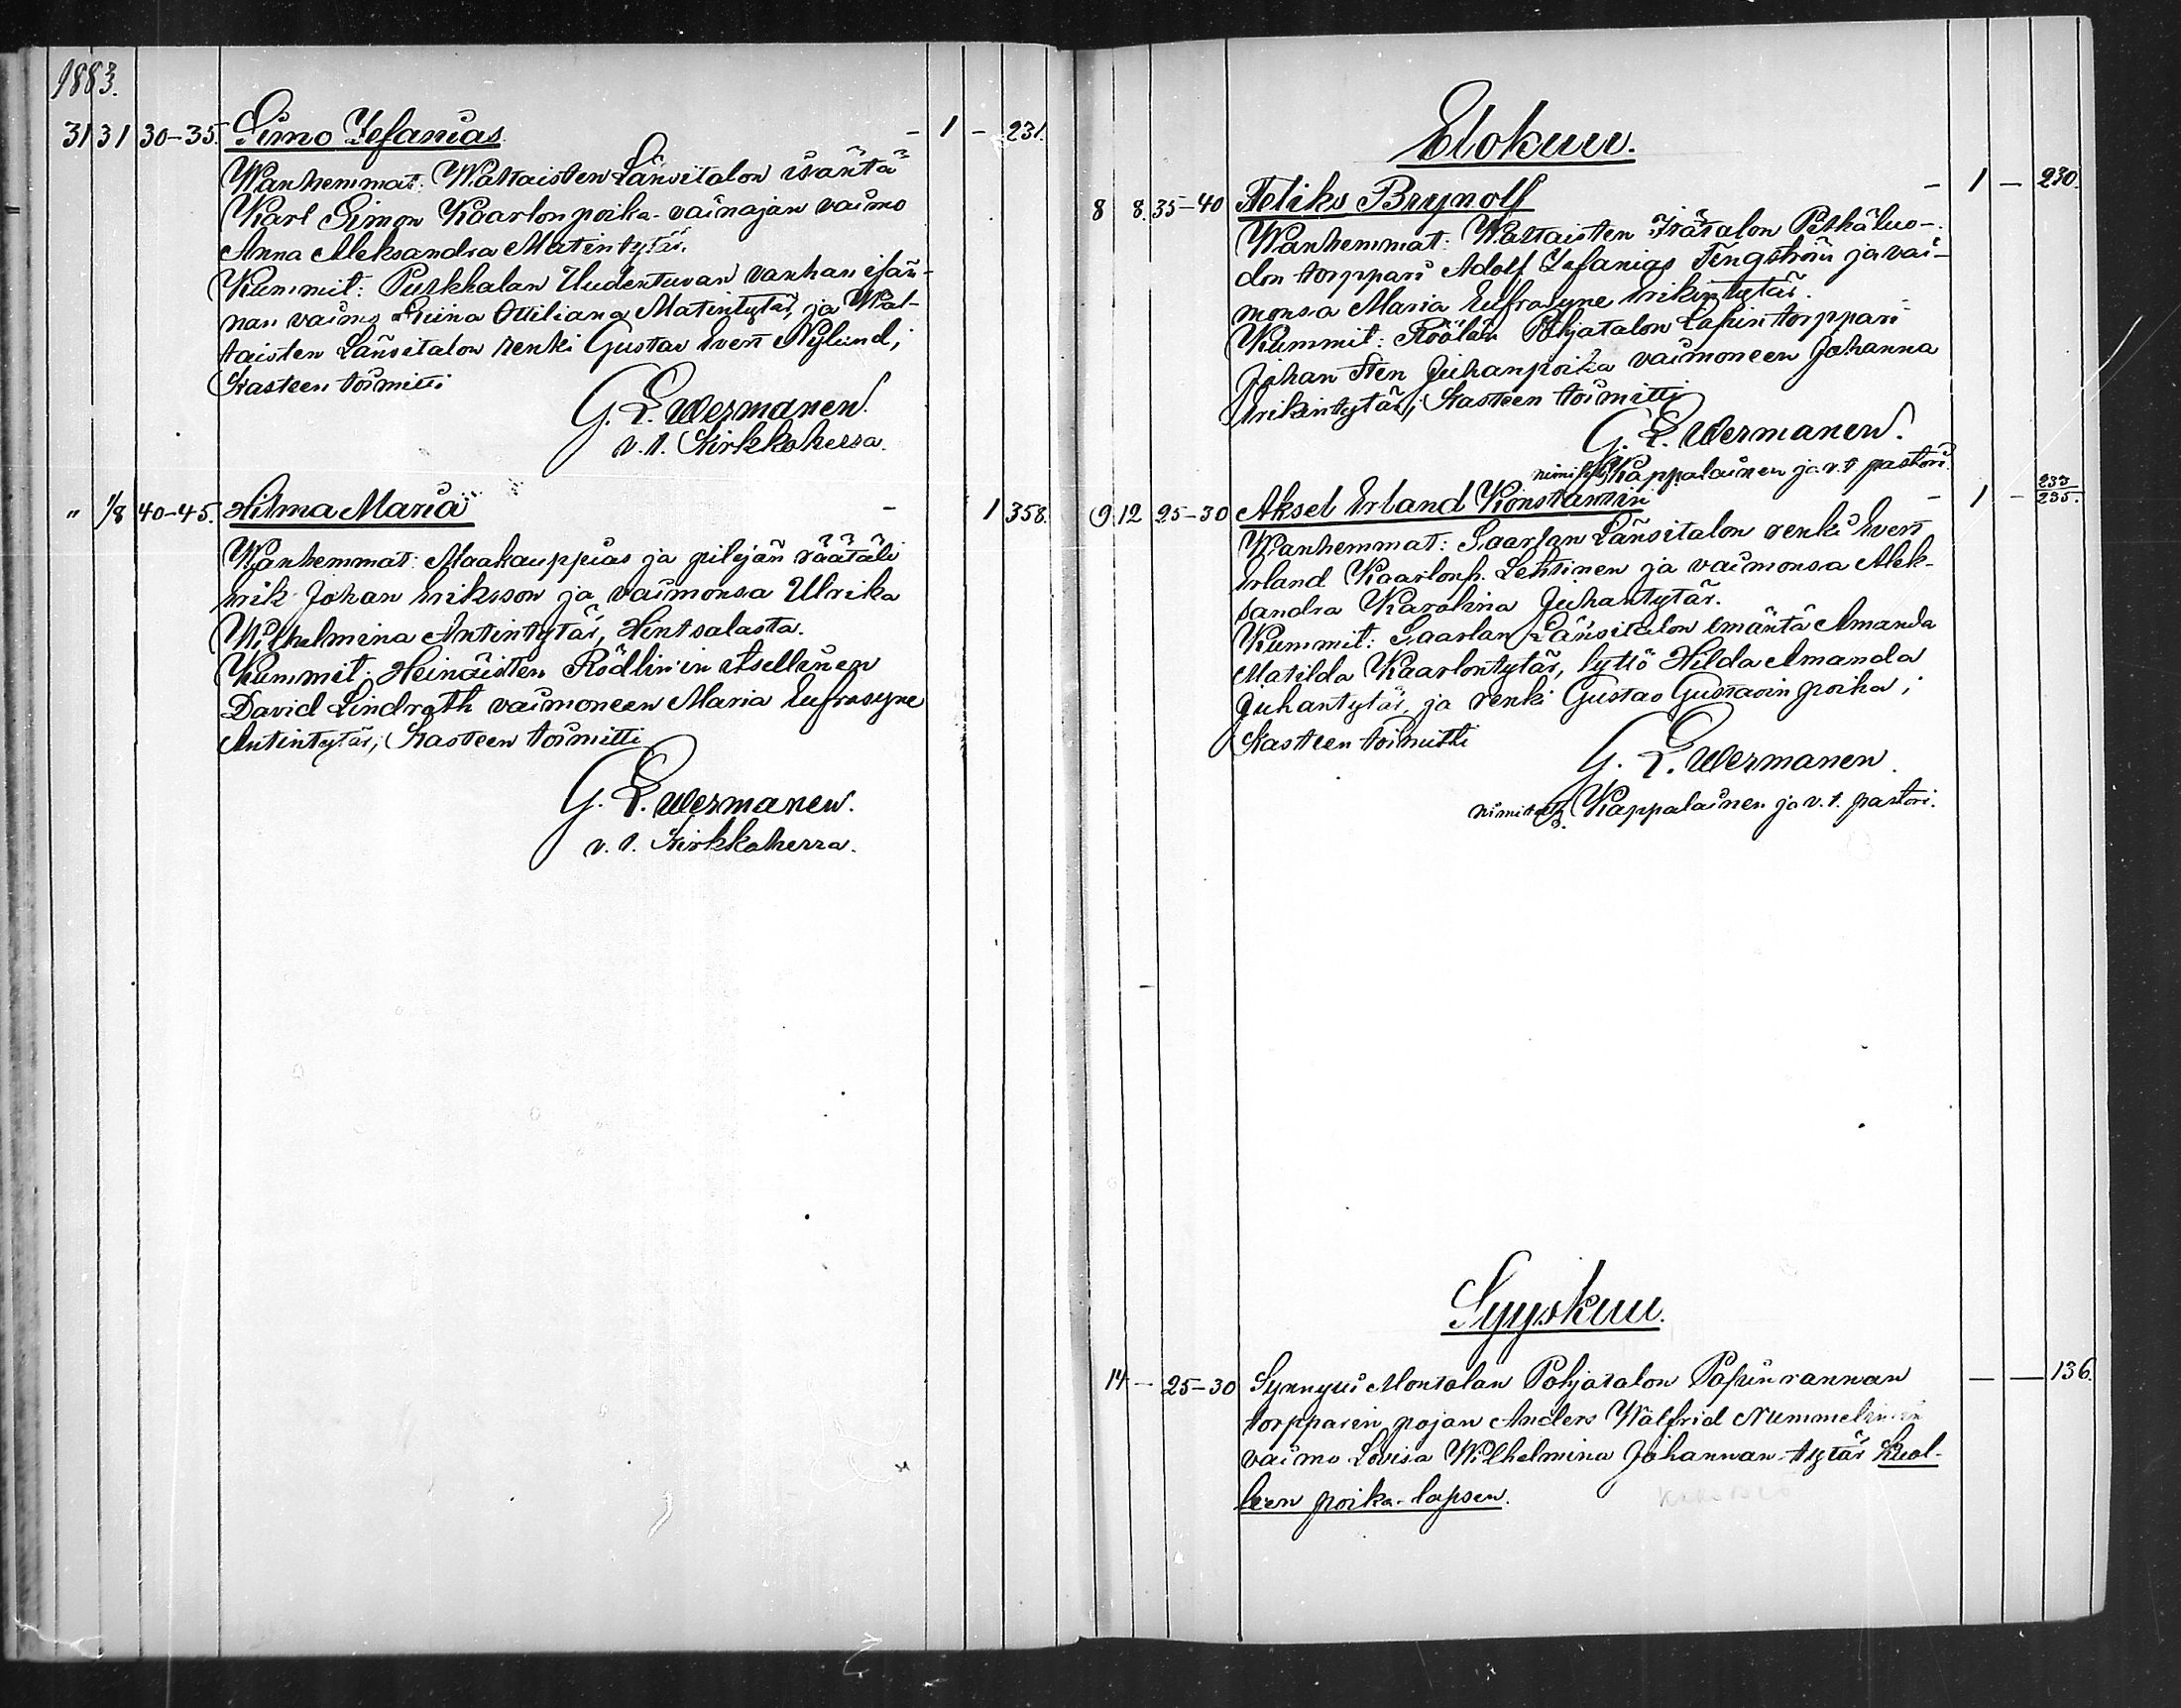 1883.
31 31 30-35. Simo Sefanias. - 1 - 231.
Wanhemmat: Wattaisten Länsitalon isäntä
Karl Simon Kaarlonpoika-vainajan vaimo
Anna Aleksandra Matintytär.
Kummit: Purkhalan Uudentuvan vanhan isän-
nan vaimo Stiina Ottiliana Matintytär, ja Wat-
taisten Länsitalon renki Gustav Evert Nylund;
Kasteen toimitti
G. E. Wermanen.
v. t. Kirkkoherra.
" 1/8 40-45. Hilma Maria - 1 358.
Wanhemmat: Maakauppias ja pitäjän räätäli
Erik Johan Eriksson ja vaimonsa Ulrika
Wilhelmina Antintytär, Hintsalasta.
Kummit: Heinäisten Rödlinin itsellinen
David Lindroth vaimoneen Maria Eufrosyne
Antintytär; Kasteen toimitti
G. E. Wermanen.
v. t. Kirkkoherra.
Elokuu.
8 8. 35-40 Feliks Brynolf - 1 - 230.
Wanhemmat: Wattaisten Isätalon Pitkäluo-
don torppari Adolf Sefanias Tengström ja vai-
monsa Maria Eufrosyne Erikintytär.
Kummit: Röölän Pohjatalon torppari
Johan Sten Juhanpoika vaimoneen Johanna
Erikintytär; Kasteen toimitti
G. E. Wermanen.
Kappalainen ja v. t. pastori.
9. 12 25-30 Aksel Erland Konstantin - 1 - 233/235.
Wanhemmat: Saarlan Länsitalon renki Evert
Erland Kaarlonp. Lehtinen ja vaimonsa Alek-
sandra Karolina Juhantytär.
Kummit: Saarlan Länsitalon emäntä Amanda
Matilda Kaarlontytär, tyttö Hilda Amanda
Juhantytär, ja renki Gustav Gustavinpoika;
Kasteen toimitti
G. E. Wermanen.
nimitetty Kappalainen ja v. t. pastori.
Syyskuu.
14 - 25-30 Synnytti Montalan Pohjatalon rannan - - 136.
torpparin pojan Anders Walfrid Nummelinin
vaimo Lovisa Wilhelmina Johannan-tytär kuol-
leen poika-lapsen.